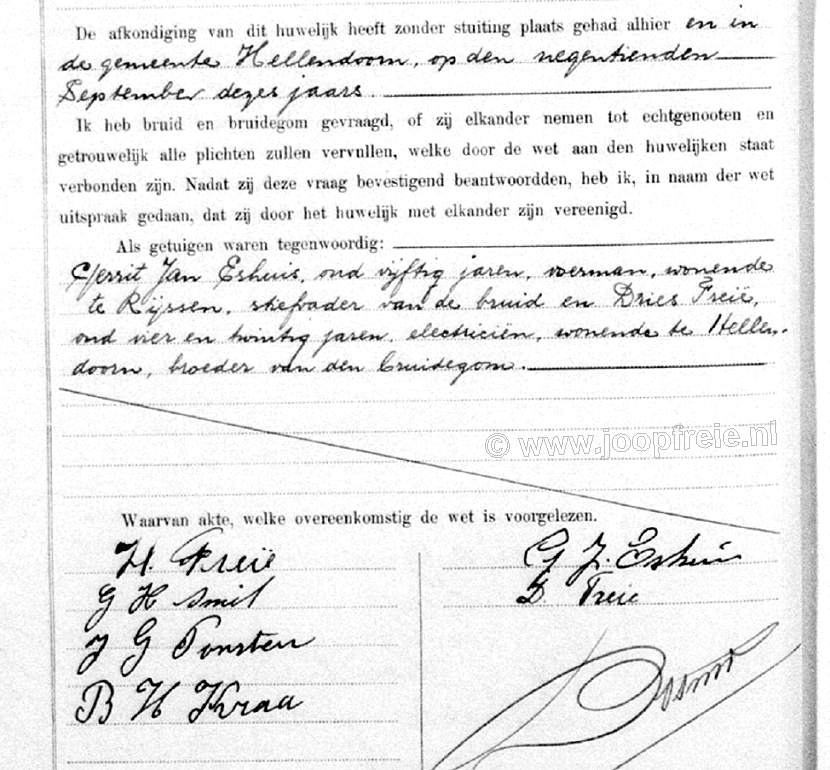 De afkondiging van dit huwelijk heeft zonder stuiting plaats gehad alhier en in
de gemeente Hellendoorn, op den negentienden
September dezes jaars.
Ik heb bruid en bruidegom gevraagd, of zij elkander nemen tot echtgenooten en
getrouwelijk alle plichten zullen vervullen, welke door de wet aan den huwelijken staat
verbonden zijn. Nadat zij deze vraag bevestigend beantwoordden, heb ik, in naam der wet
uitspraak gedaan, dat zij door het huwelijk met elkander zijn vereenigd.
Als getuigen waren tegenwoordig:
Gerrit Jan Eshuis, oud vijftig jaren, voerman, wonende
te Rijssen, stiefvader van de bruid en Dries Freië,
oud vier en twintig jaren, electriciën, wonende te Hellen-
doorn, broeder van den bruidegom.
© www.joopfreie.nl
Waarvan akte, welke overeenkomstig de wet is voorgelezen.
H. Freie
G H Smit
J G Ponsteen
B H Kraa
G J. Eshuis
D Freie